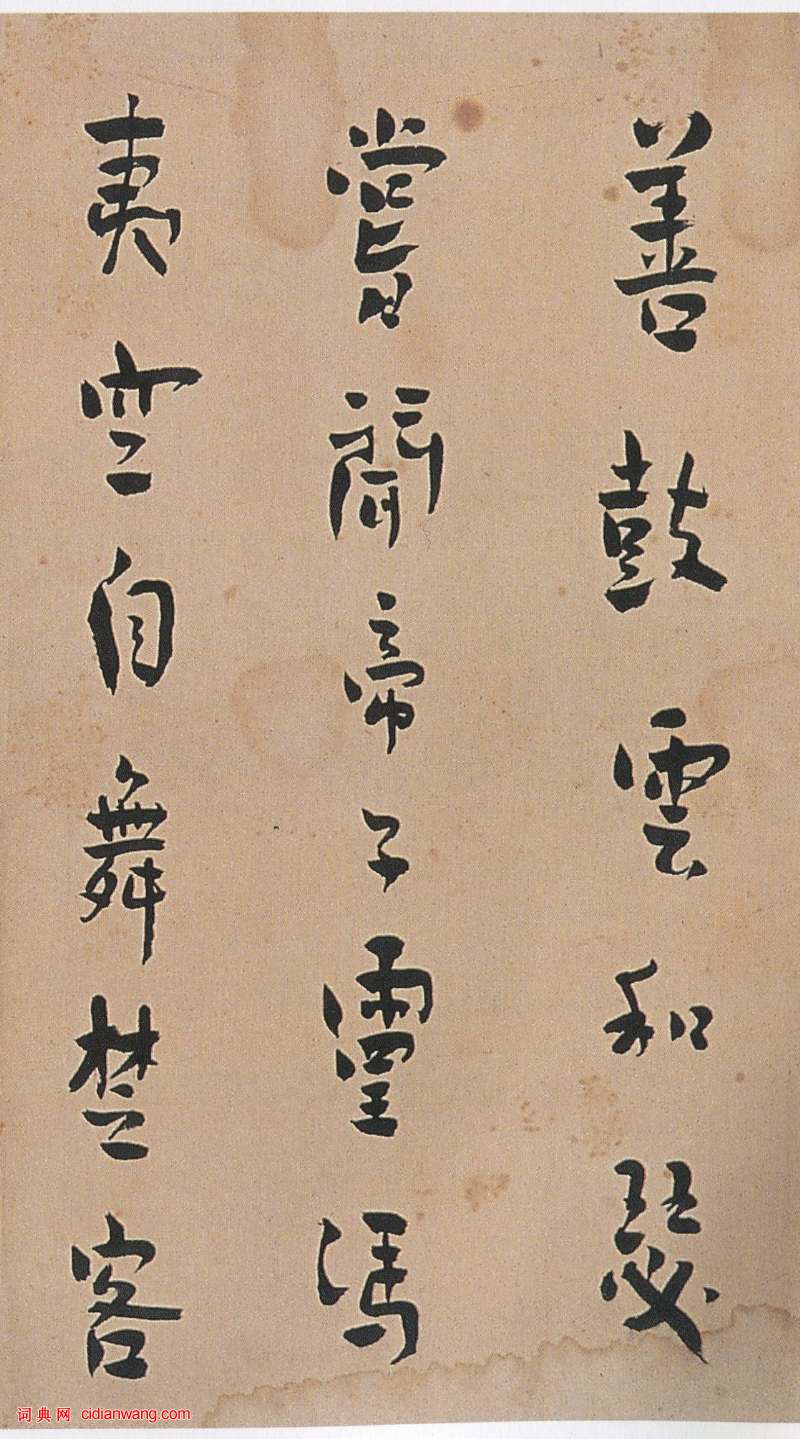 善鼓雲和瑟
嘗聞帝子靈馮
夷空自舞楚客
词典网 cidianwang.com